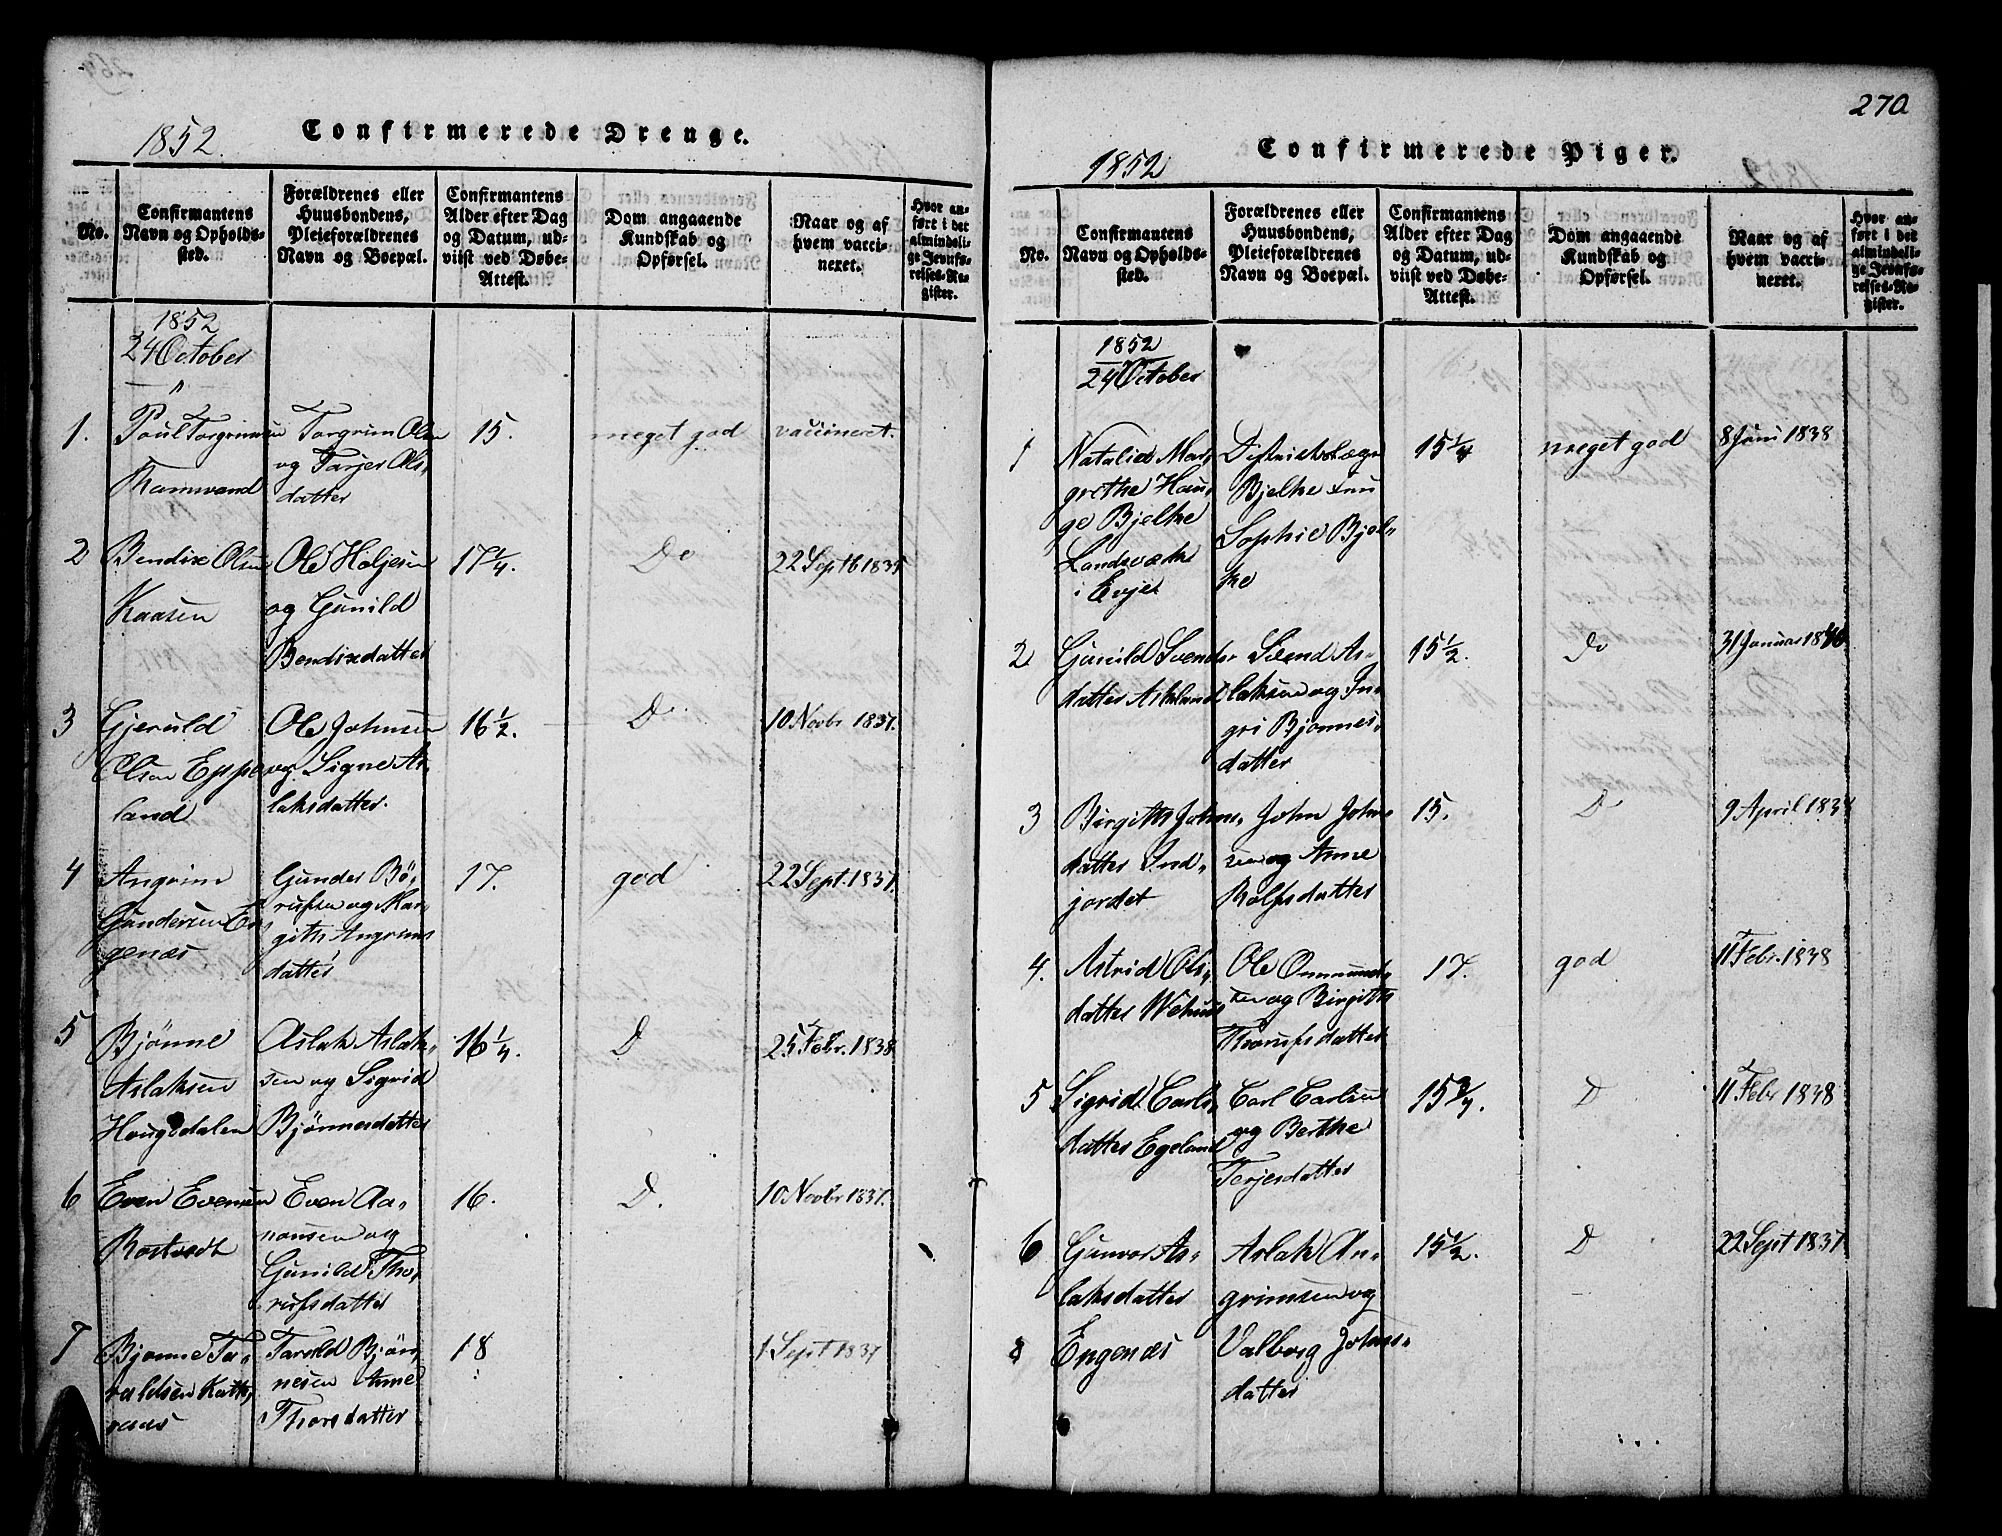 1852
Confirmerede Drenge.
No.
Confirmantens Navn og Opholds-sted.
Forældrenes eller Huusbondens, Pleieforældrenes Navn og Boepæl.
Confirmantens Alder efter Dag og Datum, ud-viist ved Døbe-Attest.
Dom angaaende Kundskab og Opførsel.
Naar og af hvem vacci-neret.
Hvor an-ført i det almindeli-ge Jevnfø-relses-Re-gister.
1852
24 October
1.
Poul Torgrimsen
Torgrim Olsen
og Tarjer Ols-
datter
15.
meget god
vaccineret.
2
Bendix Olsen
Kaasen
Ole Holjesen
og Gunild
Bendixdatter
17 1/4.
Do
22 Sept
3
Gjeruld
Olsen Eppe
land
Ole Johnsen
og Signe As-
laksdatter.
16 1/2.
D
10 Novbr 1837.
4
Angrim
Gundersen En
genæs
Gunder Bø-
rufsen og Mar-
githe Angrims
datter
17.
god
22 Sept. 1837.
5
Bjønne
Aslaksen
Hougedalen
Aslak Aslak-
sen og Sigrid
Bjønnesdatter
16 1/4.
D
25 Febr. 1838
6
Even Evensen
Rostvedt
Even Aa-
nonsen og
Gunild Tho-
rufsdatter
16.
D.
10 Novbr 1837.
7
Bjønne Ta-
raldsen Katte
raas
Tarald Bjøn
nesen Anne
Thorsdatter
18
1 Sept 1837
270
1852
Confirmerede Piger.
No.
Confirmantens Navn og Opholds-sted.
Forældrenes eller Huusbondens, Pleieforældrenes Navn og Boepæl.
Confirmantens Alder efter Dag og Datum, ud-viist ved Døbe-Attest.
Dom angaaende Kundskab og Opførsel.
Naar og af hvem vacci-neret.
Hvor an-ført i det almindeli-ge Jevnfø-relses-Re-gister.
1852
24 October
1
Natalie Mar-
grethe Hau-
ge Bjelke
Landsværk
i Evje
Districtslæge
Bjelke
Sophie Bjel-
ke
15 1/4
meget god
8 Juni 1838
2
Gunild Svends-
datter Askland
Svend As-
laksen og In-
gri Bjønnes-
datter
15 1/2.
Do
31 Januar
3
Birgithe Johns-
datter Ind-
jordet
John Johns
sen og Anne
Rolfsdatter
15.
D
9 April
4.
Astrid Ols-
datter Wehuus
Ole Ommunds
sen og Birgitte
Thorufsdatter
17.
god
11 Febr. 1838
5
Sigrid Carls-
datter Egeland
Carl Carlsen
og Berthe
Terjesdatter
15 3/4.
D
11 Febr 1838
6
Gunvor As-
laksdatter
Engenæs
Aslak An-
grimsen og
Valborg Johns-
datter
15 1/2.
D
22 Sept 1837
8